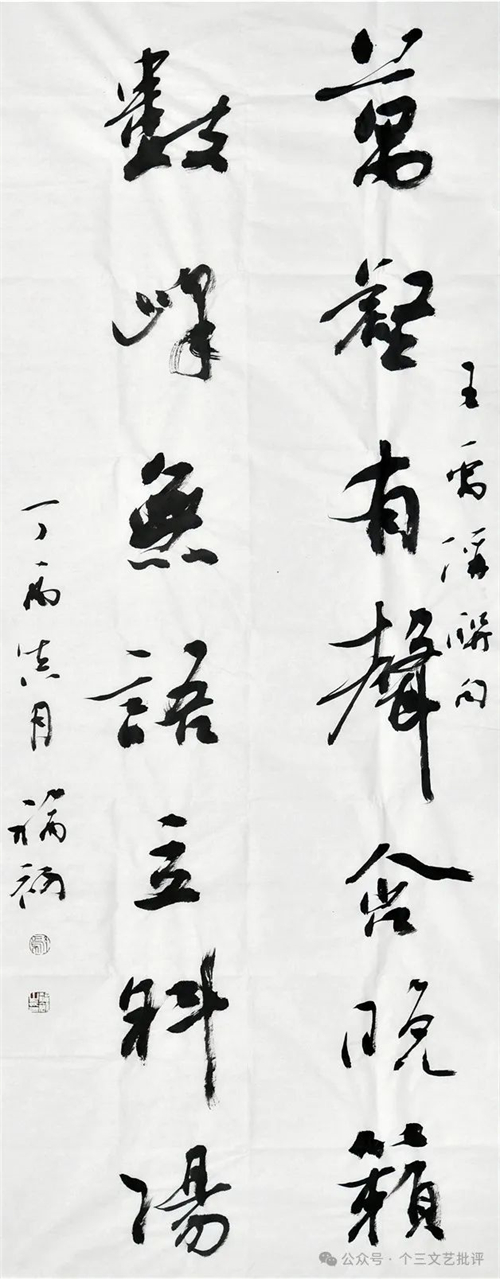 萬壑有聲含晚籟
王禹偁聯句
數峰無語立斜陽
丁丙
月
福
公众号·个三文艺批评